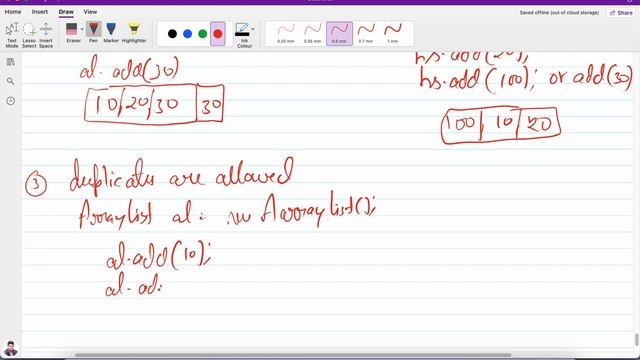 Saved offline (out of cloud storage)
Home Insert Draw View
Text Mode
Lasso Select
Insert Space
Eraser
Pen
Marker
Highlighter
Ink Colour
0.25 mm
0.35 mm
0.5 mm
0.7 mm
1 mm
al. add(30)
10 20 30 30
hs.add(20);
hs.add(100); or add(30)
100 10 20
3 duplicates are allowed
ArrayList al = new ArrayList();
al.add(10);
al.ad